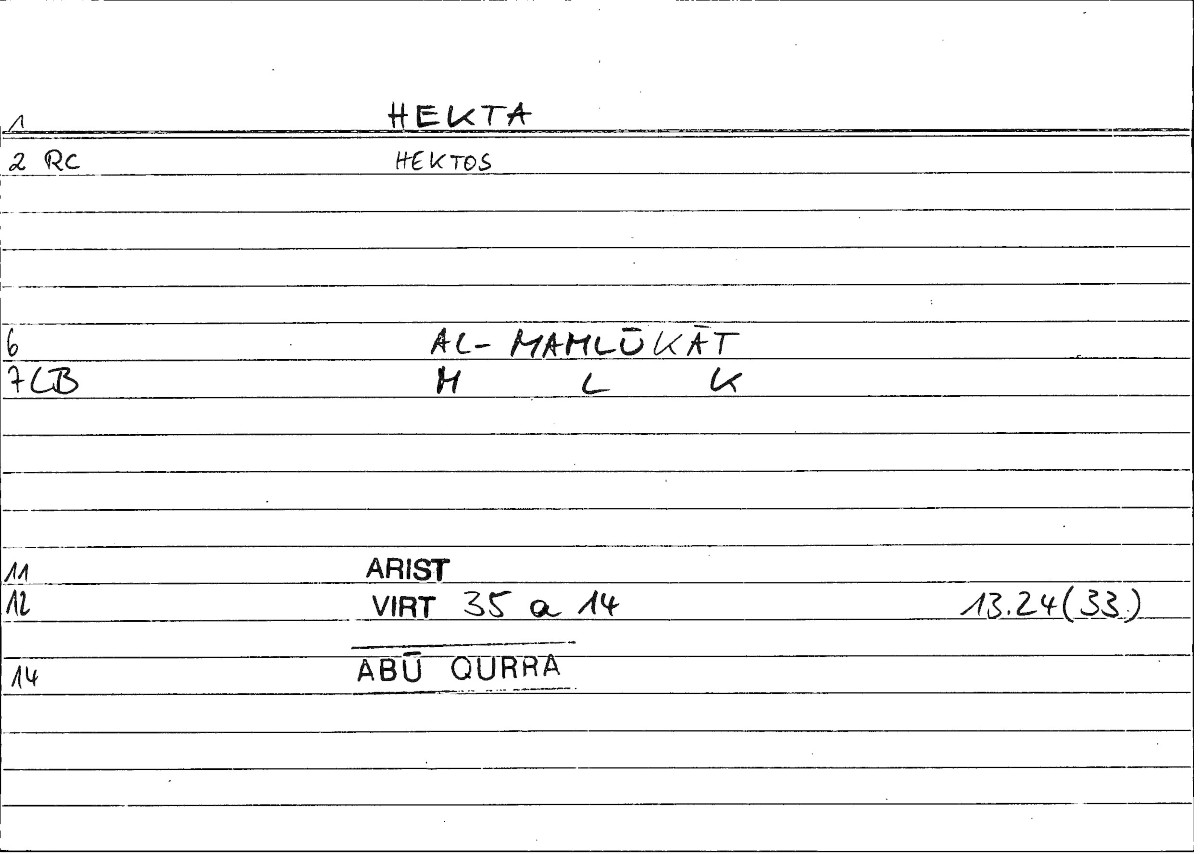 1 HEKTA
2 RC HEKTOS
6 AL-MAMLŪKĀT
7 LB M L K
11 ARIST
12 VIRT 35 a 14 13.24(33.)
14 ABŪ QURRA